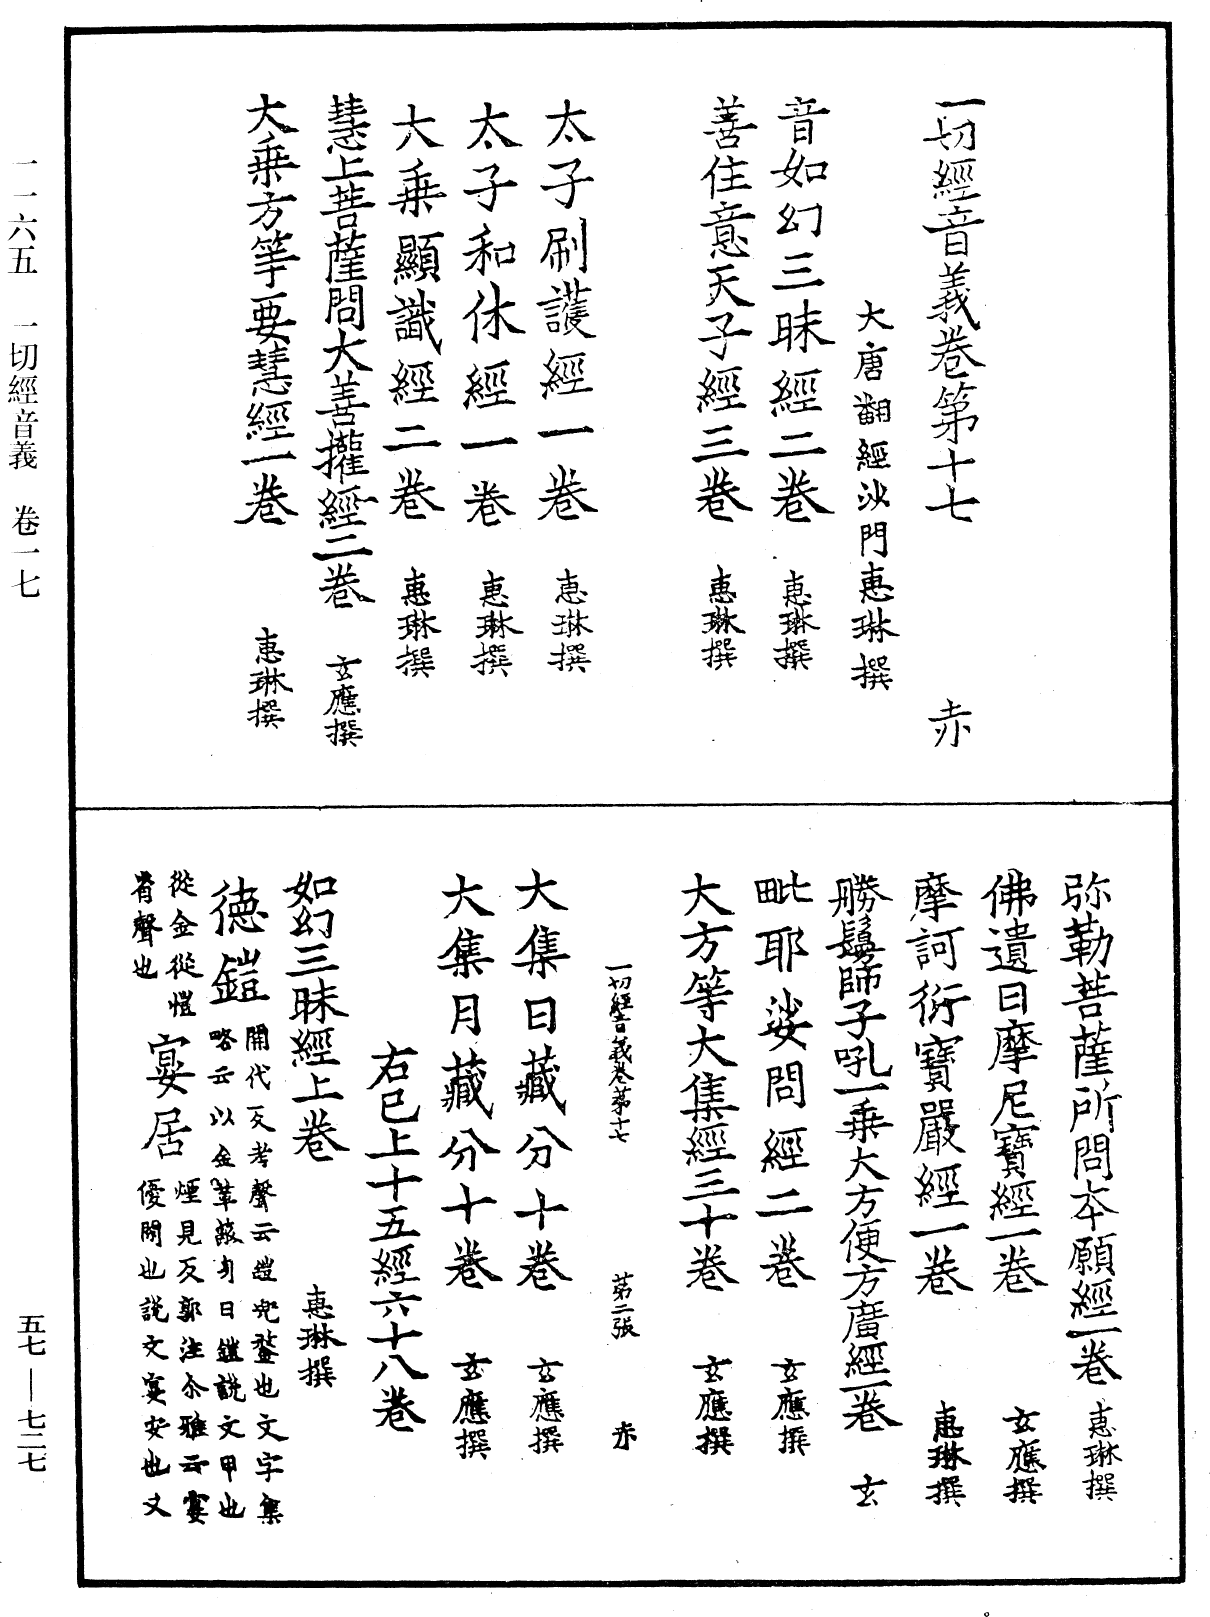 一一六五　一切經音義　卷一七
五七—七二七
一切經音義卷第十七　赤
大唐翻經沙門惠琳撰
音如幻三昧經二卷　惠琳撰
善住意天子經三卷　惠琳撰
太子刷護經一卷　惠琳撰
太子和休經一卷　惠琳撰
大乘顯識經二卷　惠琳撰
慧上菩薩問大善攉經二卷　玄應撰
大乘方等要慧經一卷　惠琳撰
弥勒菩薩所問本願經一卷　惠琳撰
佛遺日摩尼寶經一卷　玄應撰
摩訶衍寶嚴經一卷　惠琳撰
勝鬘師子吼一乘大方便方廣經一卷　玄
毗耶娑問經二卷　玄應撰
大方等大集經三十卷　玄應撰
一切經音義卷第十七　第二張　赤
大集日藏分十卷　玄應撰
大集月藏分十卷　玄應撰
右巳上十五經六十八卷
如幻三昧經上卷　惠琳撰
德鎧開代反考聲云鎧兜鍪也文字集
略云以金革蔽身曰鎧說文甲也
從金從愷
省聲也　宴居煙見反郭注尒雅云宴
優閑也說文宴安也又